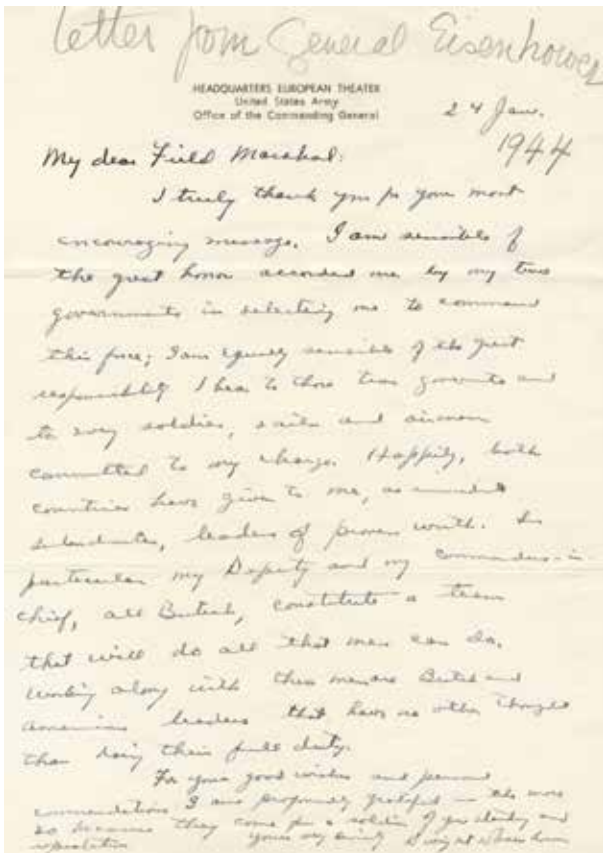 letter from General Eisenhower
HEADQUARTERS EUROPEAN THEATER
United States Army
Office of the Commanding General
24 Jan.
1944
My dear Field Marshal:
I truly thank you for your most
encouraging message. I am sensible of
the great honor accorded me by my two
governments in selecting me to command
this force; I am equally sensible of the great
responsibility I bear to those two governments and
to every soldier, sailor and airman
committed to my charge. Happily, both
countries have given to me, as immediate
subordinates, leaders of proven worth. In
particular my Deputy and my commanders-in-
chief, all British, constitute a team
that will do all that men can do.
Working along with these men are British and
American leaders that have no other thought
than doing their full duty.
For your good wishes and personal
commendations I am profoundly grateful — the more
so because they come from a soldier of your standing and
reputation
Yours sincerely Dwight Eisenhower